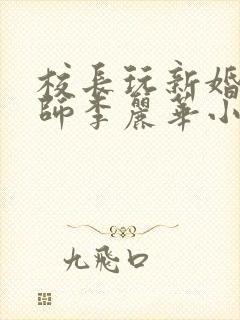 校長玩新婚
師李麗華小
九飛口